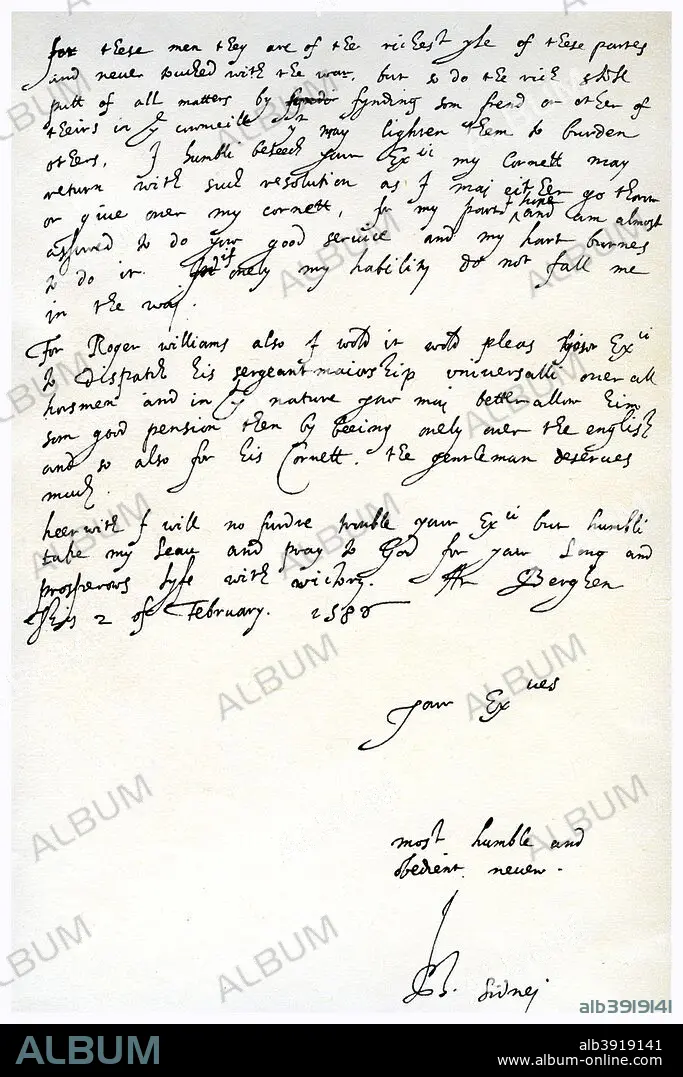 for these men they are of the richest yle of these partes
and never touched with the war, but so do the rich still
putt of all matters by fynding som frend or other of
theirs in ye cownceill yt may lighten them to burden
others, I humbli beseech yowr Exii my Cornett may
return with such resolution as I mai either go thorow
or give over my cornett, for my part hine and am almost
assured to do yow good service and my hart burnes
to do it if onely my hability do not fall me
in the wai.
For Roger williams also I wold it wold pleas yowr Exii
to dispatch his sergeantmaiorship universalli over all
horsmen and in ye nature yow mai better allow him
som good pension then by beeing onely over the english
and so also for his Cornett. the gentleman deserves
much.
heerwith I will no furdre trouble yowr Exii but humbli
take my leau and pray to God for yowr Long and
prosperows lyfe with victory. At Berghen
this 2 of February. 1586
Yowr Exties
most humble and
obedient neuew.
Ph. Sidnei
ALBUM
alb3919141
ALBUM
alb3919141
www.album-online.com